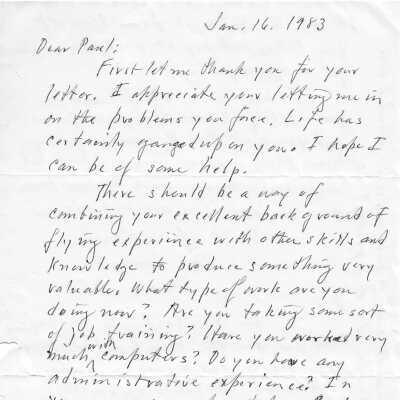 Jan. 16. 1983
Dear Paul:
First let me thank you for your
letter. I appreciate your letting me in
on the problems you face. Life has
certainly ganged up on you. I hope I
can be of some help.
There should be a way of
combining your excellent background of
flying experience with other skills and
knowledge to produce something very
valuable. What type of work are you
doing now? Are you taking some sort
of job training? Have you worked very
much with computers? Do you have any
administrative experience? In